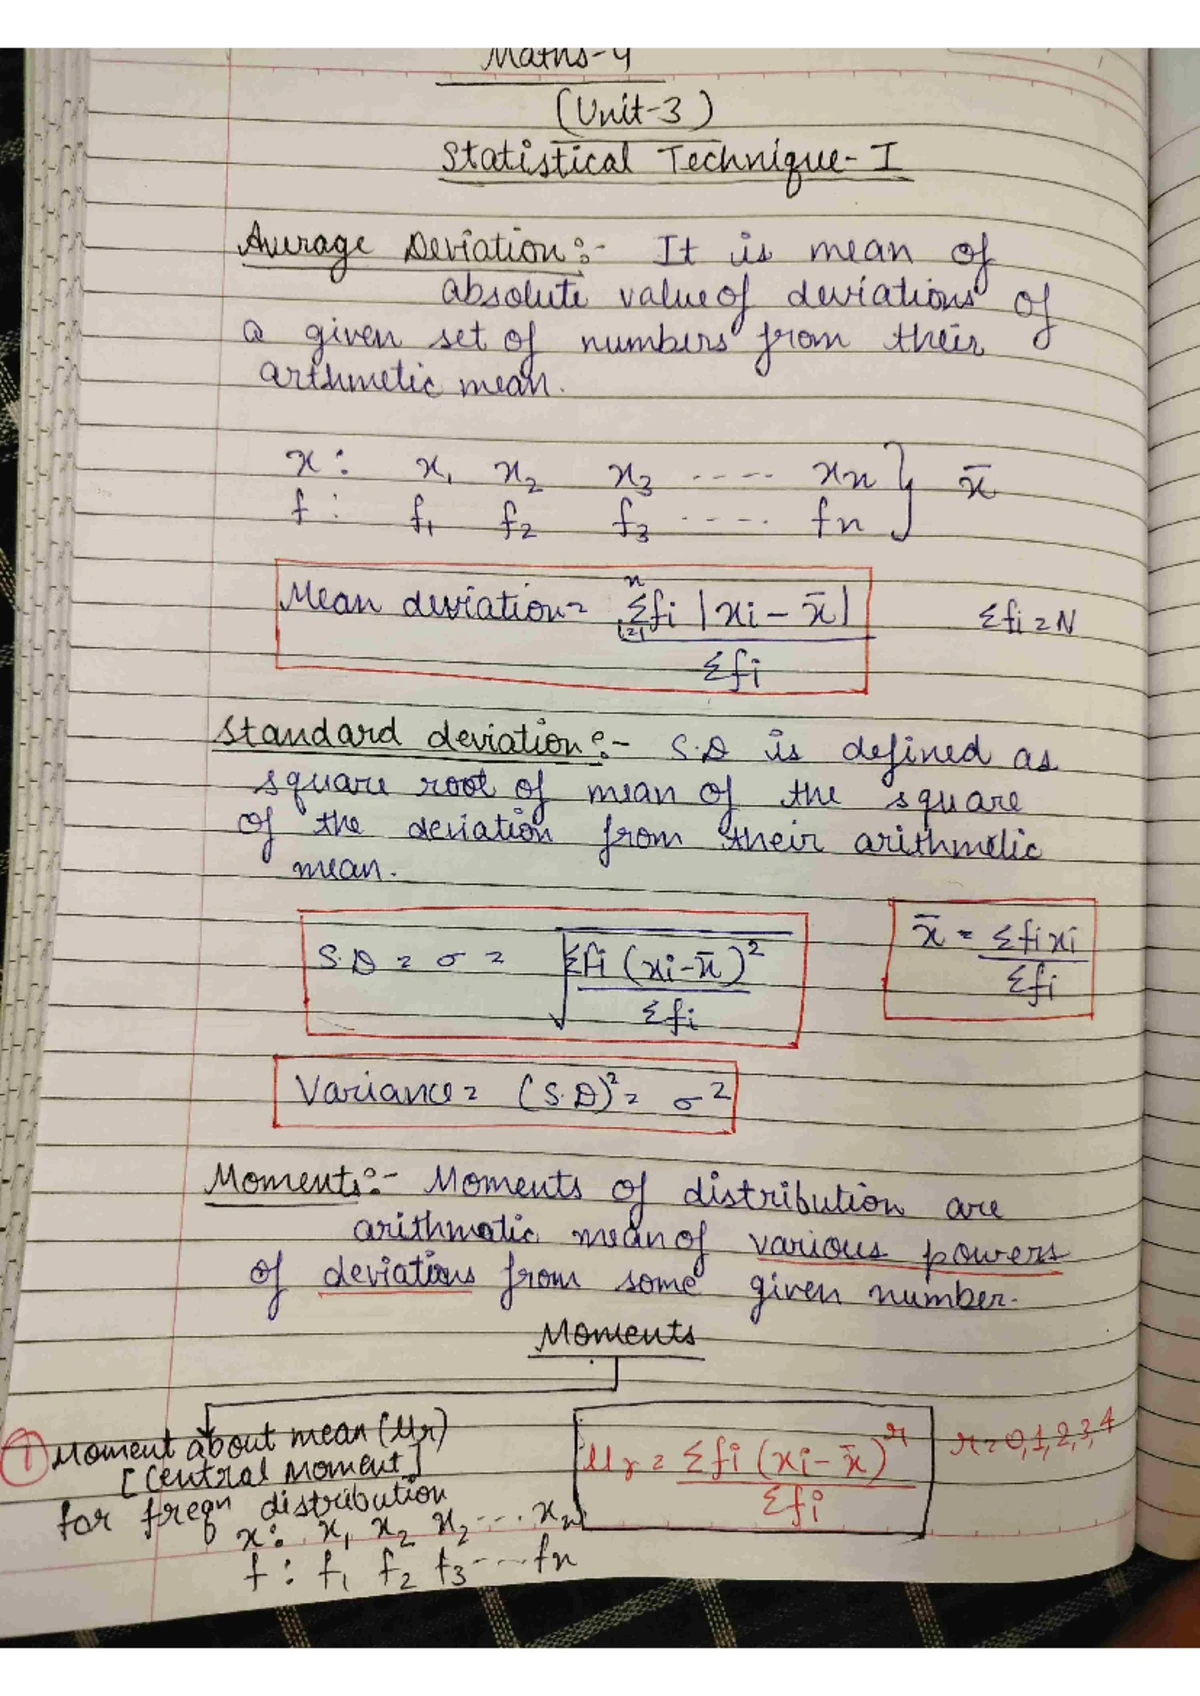 Maths-4
(Unit-3)
Statistical Technique-I
Average Deviation:- It is mean of
absolute value of deviations of
a given set of numbers from their
arthmetic mean.
x : x₁ x₂ x₃ ---- xn } x̄
f : f₁ f₂ f₃ ---- fn
Mean deviation = Σⁿᵢ₌₁ fi |xi - x̄| / Σfi
Σfi = N
Standard deviation:- S.D is defined as
square root of mean of the square
of the deviation from their arithmetic
mean.
S.D = σ = √(Σfi (xi-x̄)² / Σfi)
x̄ = Σfixi / Σfi
Variance = (S.D)² = σ²
Moments:- Moments of distribution are
arithmatic mean of various powers
of deviations from some given number.
Moments
① Moment about mean (μr)
[Central Moment]
for freqn distribution
x: x₁ x₂ x₂ ... xn
f : f₁ f₂ f₃ ---- fn
μr = Σfi (xi - x̄)ʳ / Σfi
r = 0,1,2,3,4